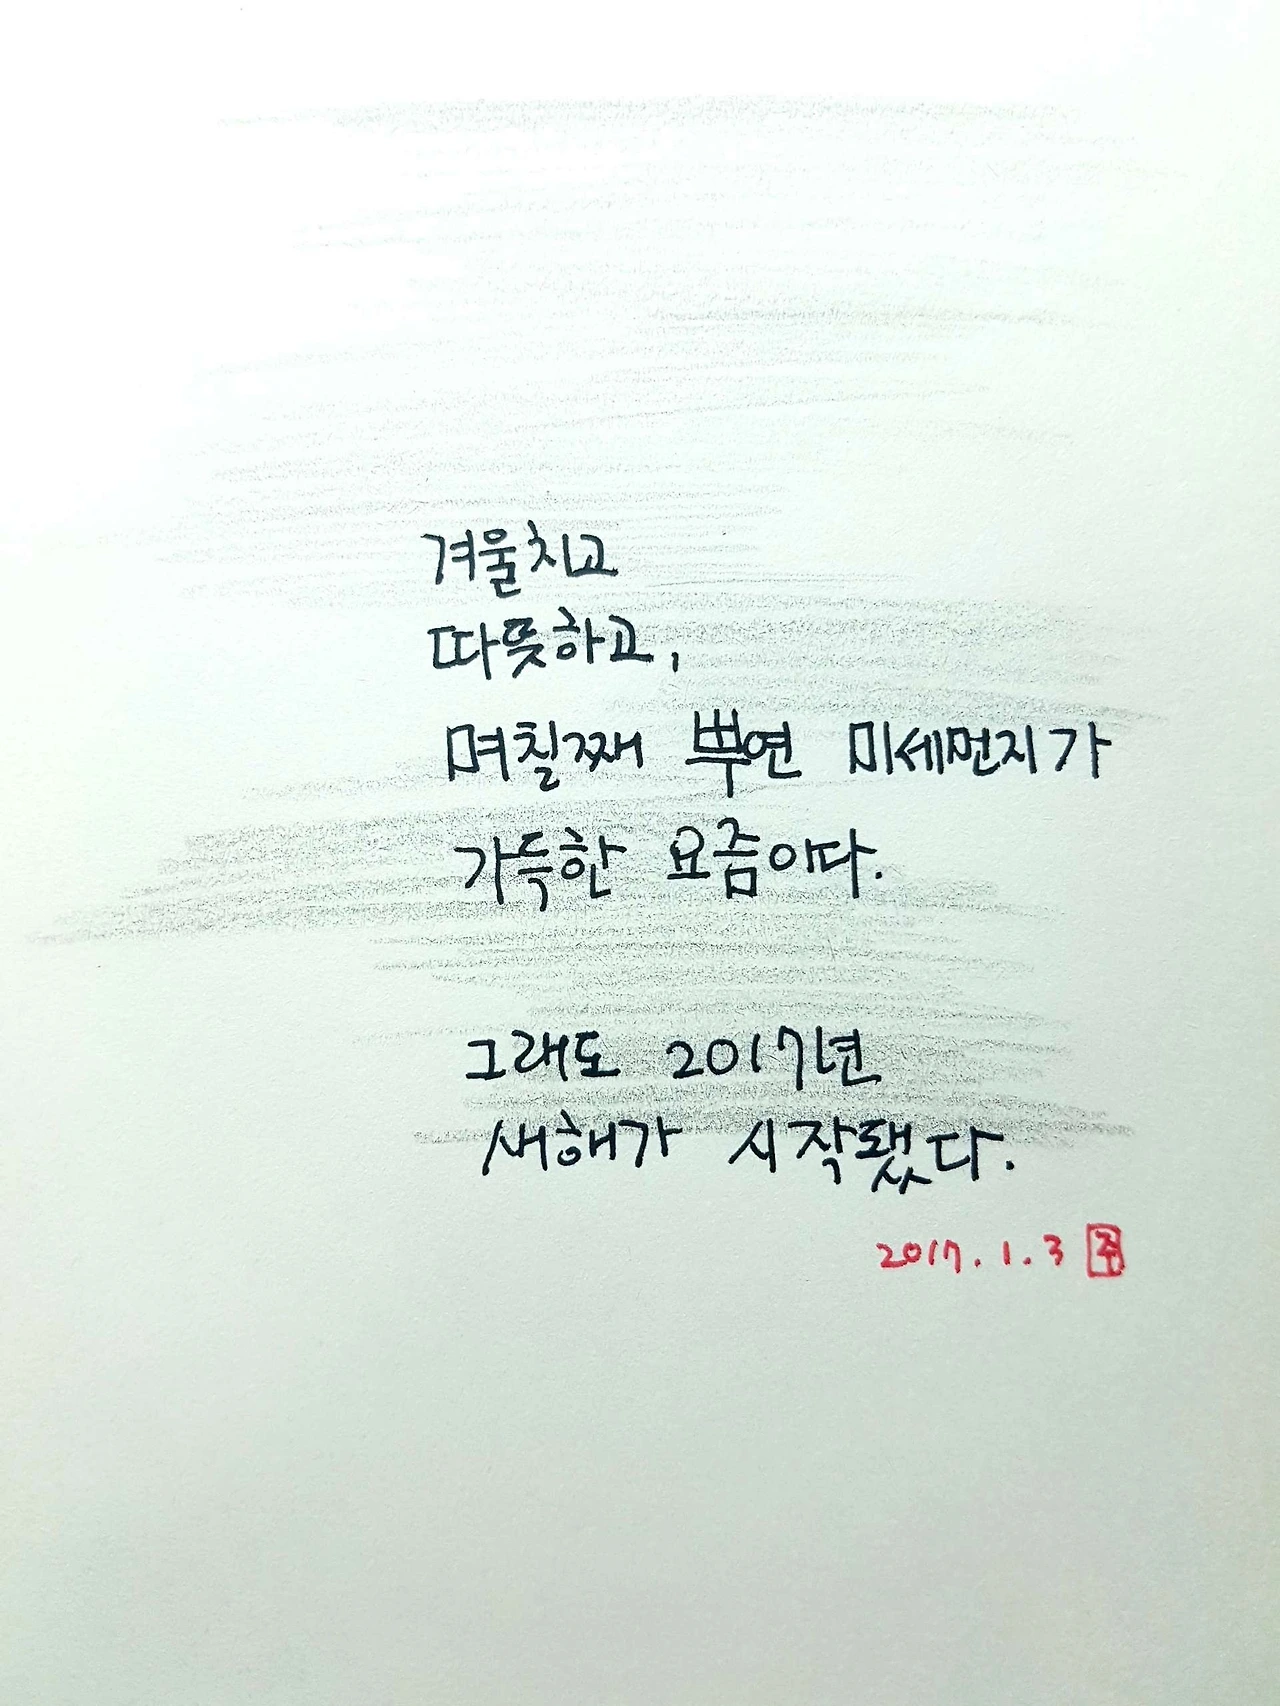 겨울치고
따뜻하고,
며칠째 뿌연 미세먼지가
가득한 요즘이다.
그래도 2017년
새해가 시작됐다.
2017.1.3 주